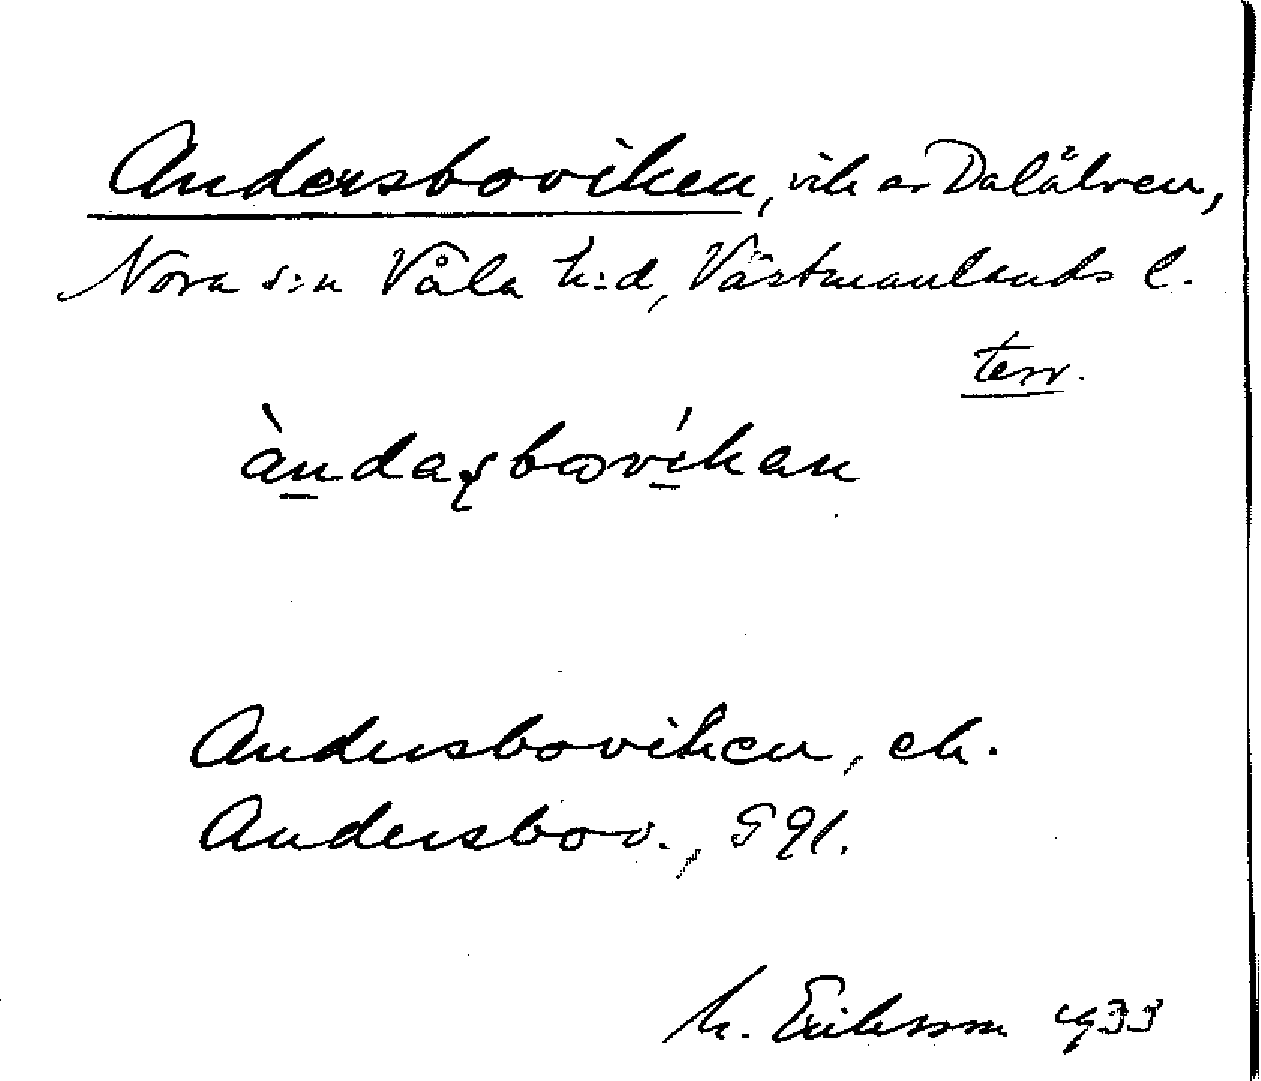 Andersboviken, vik av Dalälven,
Nora s:n Våla h:d, Västmanlands l.
terr.
Andersboviken, ek.
Andersbov., G 91.
M. Eriksson 1933